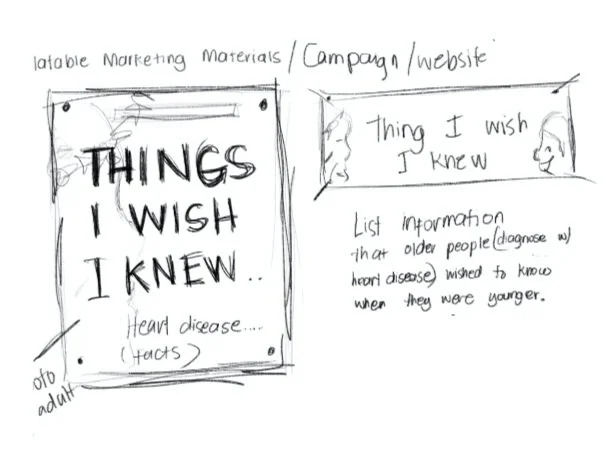 latable Marketing Materials / Campaign / website
THINGS
I WISH
I KNEW..
Heart disease....
(facts)
oto
adult
Thing I wish
I knew
List information
that older people (diagnose w/
heart disease) wished to know
when they were younger.